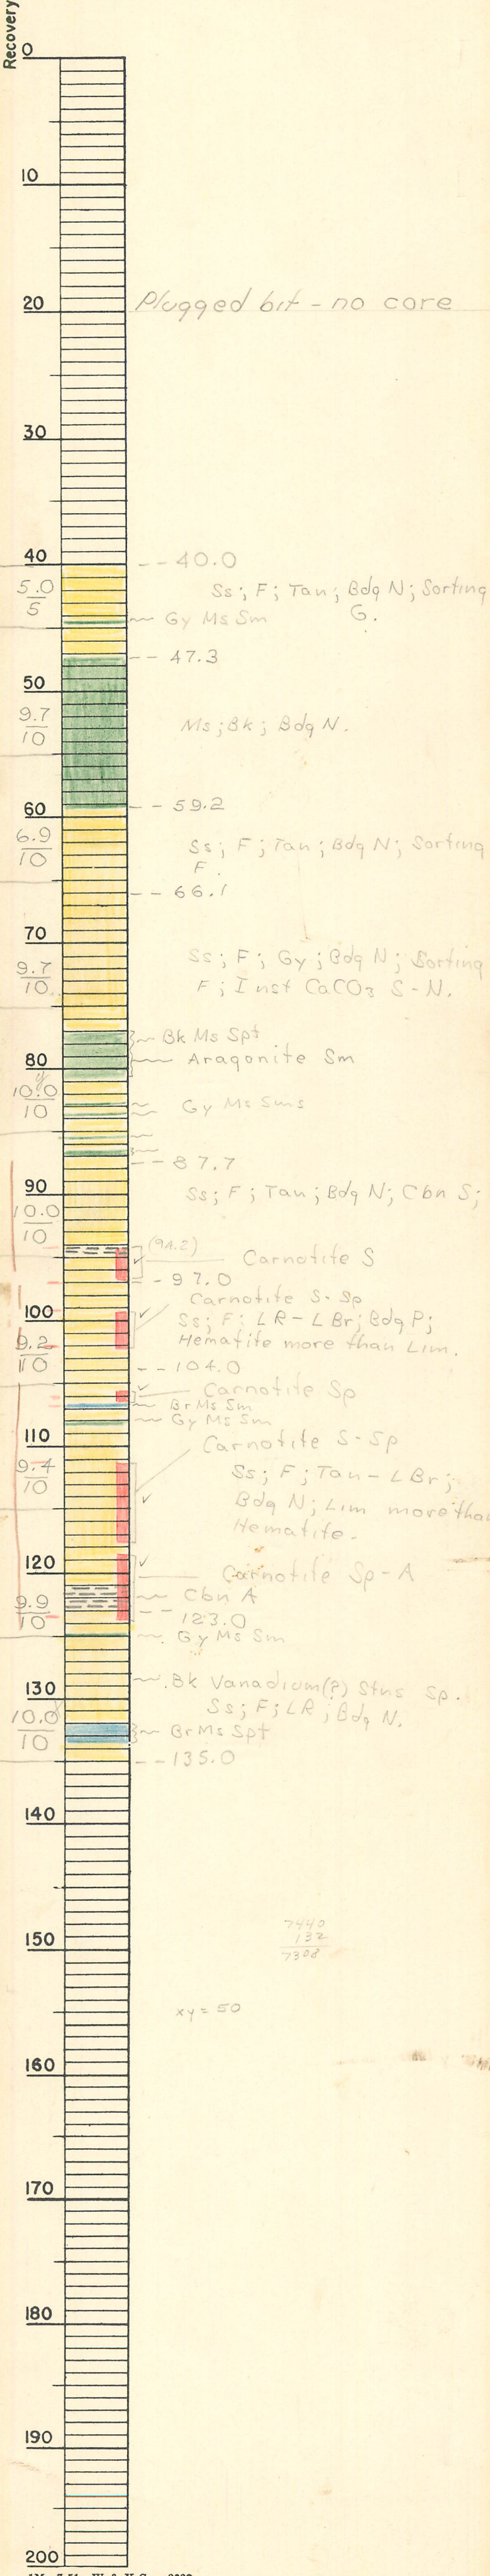 Recovery
0
10
20
Plugged bit - no core
30
40
-- 40.0
5.0
5
Ss; F; Tan; Bdg N; Sorting
G.
Gy Ms Sm
-- 47.3
50
9.7
10
Ms; Bk; Bdg N.
-- 59.2
60
6.9
10
Ss; F; Tan; Bdg N; Sorting
F.
-- 66.1
70
9.7
10
Ss; F; Gy; Bdg N; Sorting
F; Inst CaCO3 S-N.
Bk Ms Spt
80
Aragonite Sm
10.0
10
Gy Ms Sms
-- 87.7
90
Ss; F; Tan; Bdg N; Cbn S;
10.0
10
(94.2)
Carnotite S
-- 97.0
Carnotite S-Sp
100
Ss; F; LR-LBr; Bdg P;
9.2
10
Hematite more than Lim.
-- 104.0
Carnotite Sp
Br Ms Sm
Gy Ms Sm
110
Carnotite S-Sp
9.4
10
Ss; F; Tan-LBr;
Bdg N; Lim more than
Hematite.
120
Carnotite Sp-A
Cbn A
9.9
10
-- 123.0
Gy Ms Sm
Bk Vanadium(?) Stns Sp.
130
Ss; F; LR; Bdg N.
10.0
10
Br Ms Spt
-- 135.0
140
7440
132
7308
150
xy = 50
160
170
180
190
200